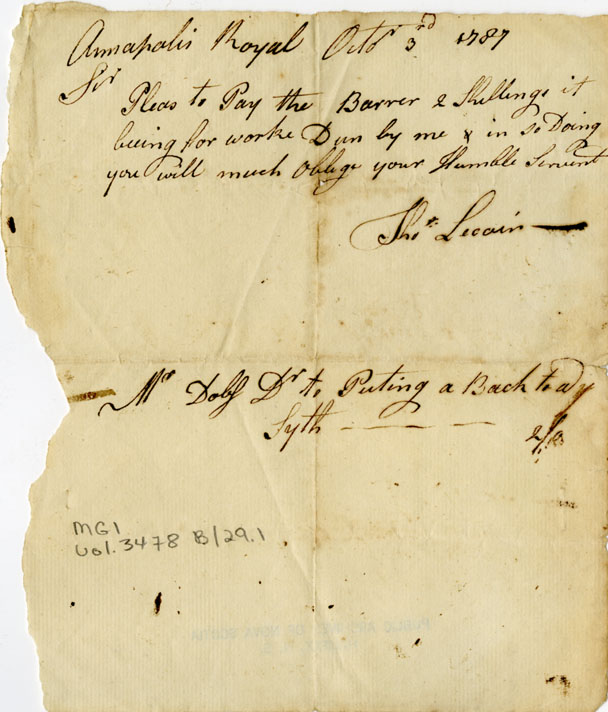 Annapolis Royal Octbr 3rd 1787
Sir
Pleas to Pay the Barrer 2 Shillings it
being for worke Dun by me & in so Doing
you will much Oblige your Humble Servent
Thos. Lecain
Mr Dolf Dr to Puting a Back to a
Syth 2/0
MG1
Vol. 3478 B/29.1
PUBLIC ARCHIVES OF NOVA SCOTIA